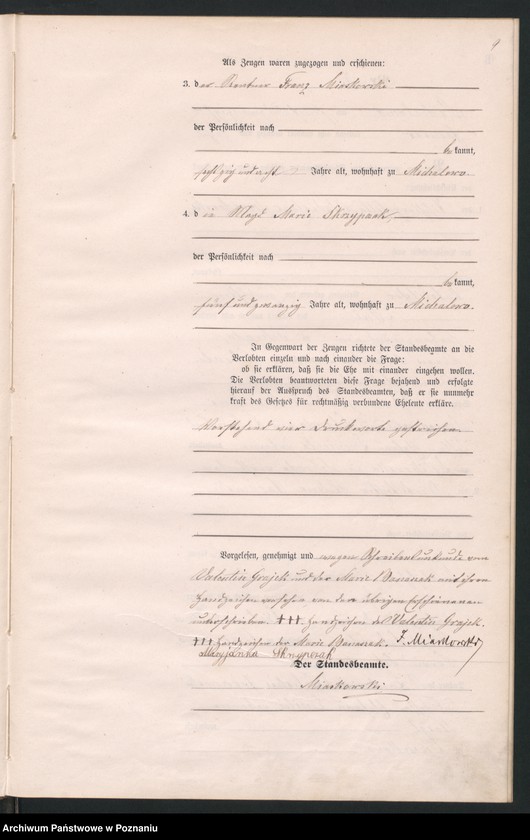 9
Als Zeugen waren zugezogen und erschienen:
3. der Rentner Franz Miaskowski
der Persönlichkeit nach
bekannt,
sechszig und acht Jahre alt, wohnhaft zu Michalowo.
4. die Magd Marie Skrzypczak,
der Persönlichkeit nach
bekannt,
fünf und zwanzig Jahre alt, wohnhaft zu Michalowo.
In Gegenwart der Zeugen richtete der Standesbeamte an die
Verlobten einzeln und nach einander die Frage:
ob sie erklären, daß sie die Ehe mit einander eingehen wollen.
Die Verlobten beantworteten diese Frage bejahend und erfolgte
hierauf der Ausspruch des Standesbeamten, daß er sie nunmehr
kraft des Gesetzes für rechtmäßig verbundene Eheleute erkläre.
Vorstehend vier Druckworte gestrichen.
Vorgelesen, genehmigt und wegen Schreibensunkunde von
Valentin Grajek und der Marie mit ihren
Handzeichen versehen von den übrigen Erschienenen
unterschrieben. +++ Handzeichen des Valentin Grajek.
+++ Handzeichen der Marie F. Miaskowski
Maryjanka Skrypczak
Der Standesbeamte.
Miaskowski
Archiwum Państwowe w Poznaniu